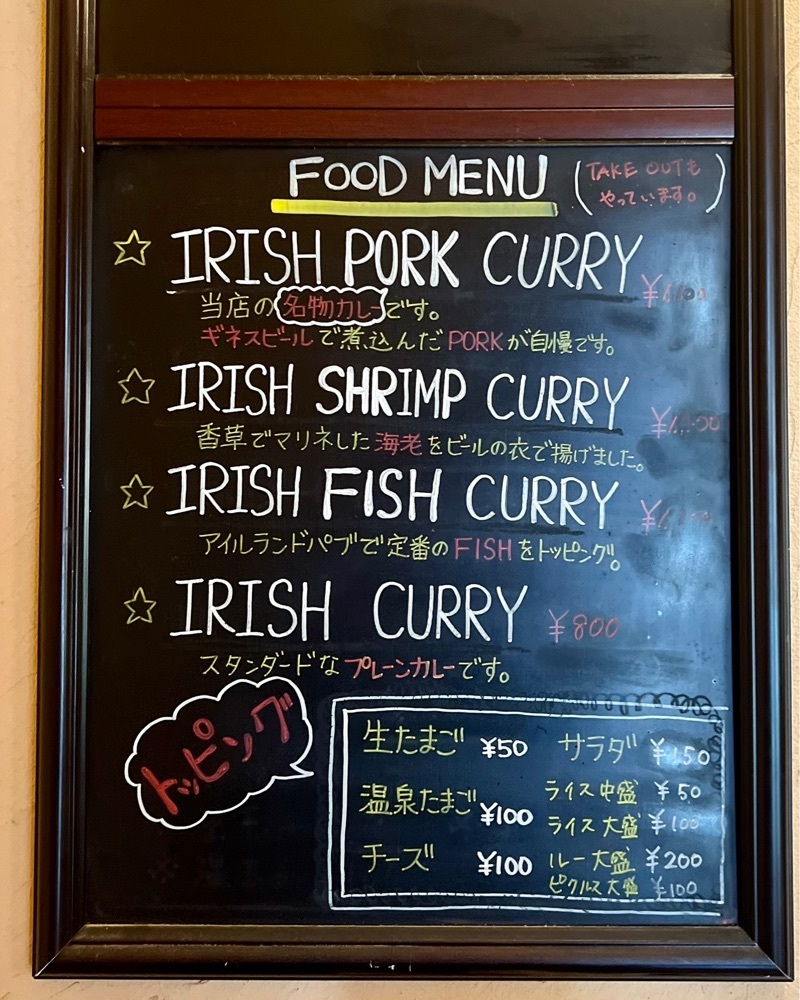 FOOD MENU
(TAKE OUTも
やっています。)
☆ IRISH PORK CURRY
当店の名物カレーです。
ギネスビールで煮込んだPORKが自慢です。
☆ IRISH SHRIMP CURRY
香草でマリネした海老をビールの衣で揚げました。
☆ IRISH FISH CURRY
アイルランドパブで定番のFISHをトッピング。
☆ IRISH CURRY ¥800
スタンダードなプレーンカレーです。
トッピング
生たまご ¥50
温泉たまご ¥100
チーズ ¥100
サラダ ¥150
ライス中盛 ¥50
ライス大盛 ¥100
ルー大盛 ¥200
ピクルス大盛 ¥100